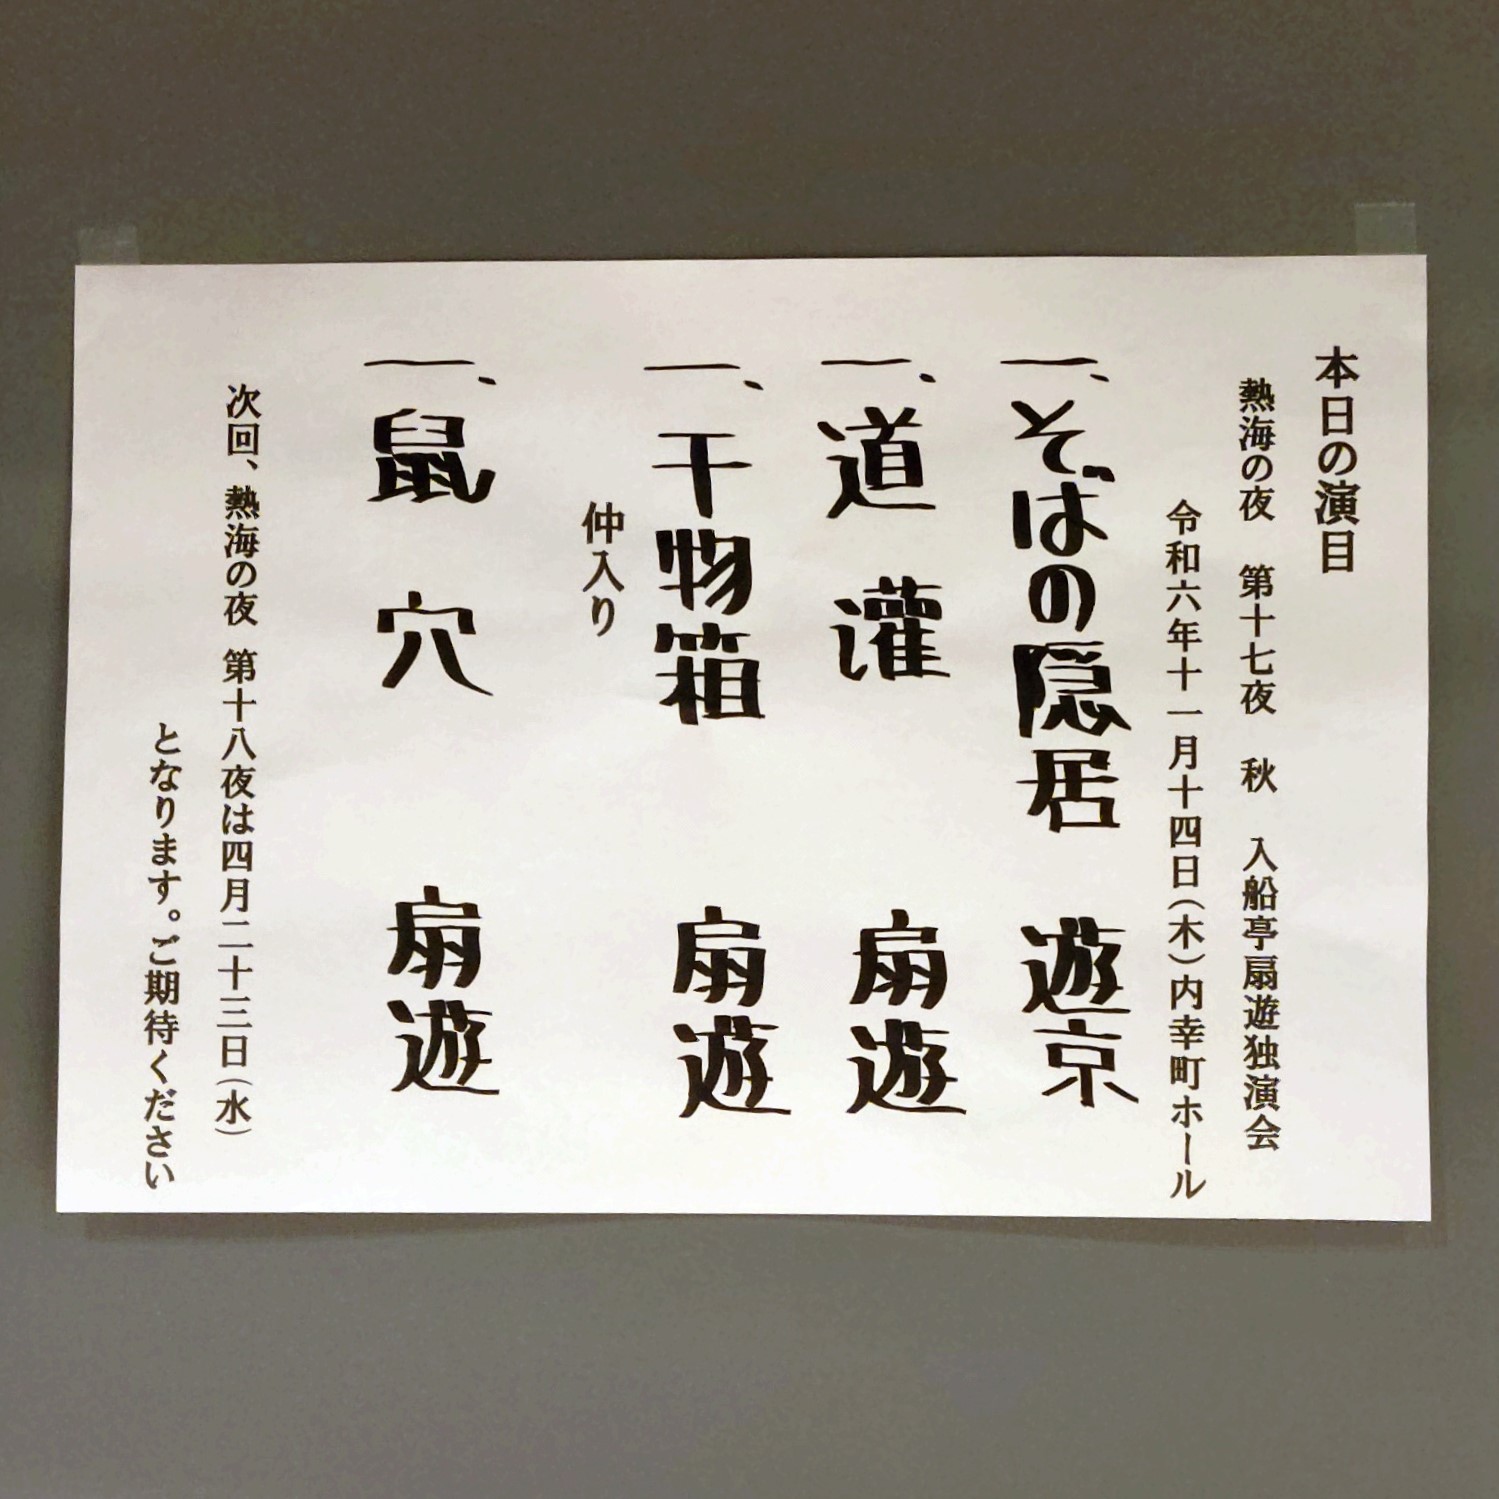 本日の演目
熱海の夜 第十七夜 秋 入船亭扇遊独演会
令和六年十一月十四日(木)内幸町ホール
一、そばの隠居 遊京
一、道灌 扇遊
一、干物箱 扇遊
仲入り
一、鼠穴 扇遊
次回、熱海の夜 第十八夜は四月二十三日(水)
となります。ご期待ください